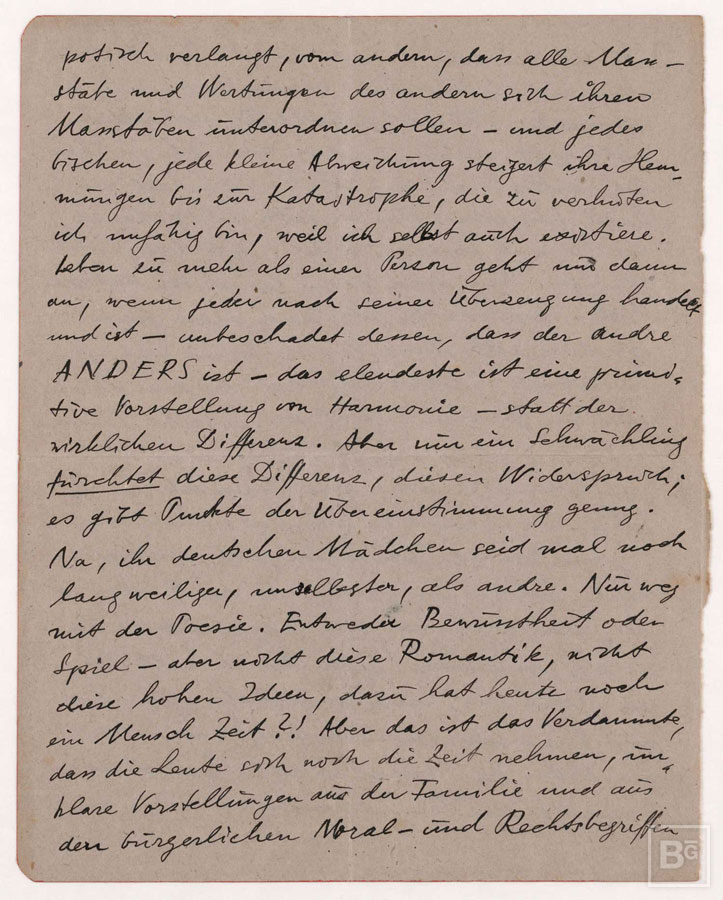 potisch verlangt, vom andern, dass alle Mass-
stäbe und Wertungen des andern sich ihren
Massstäben unterordnen sollen – und jedes
bischen, jede kleine Abweichung steigert ihre Hem-
mungen bis zur Katastrophe, die zu verhüten
ich unfähig bin, weil ich selbst auch existiere.
Leben zu mehr als einer Person geht nur dann
an, wenn jeder nach seiner Überzeugung handelt
und ist – unbeschadet dessen, dass der andre
ANDERS ist – das elendeste ist eine primi-
tive Vorstellung von Harmonie – statt der
wirklichen Differenz. Aber nur ein Schwächling
fürchtet diese Differenz, diesen Widerspruch;
es gibt Punkte der Übereinstimmung genug.
Na, ihr deutschen Mädchen seid mal noch
langweiliger, unselbster, als andre. Nur weg
mit der Poesie. Entweder Bewusstheit oder
Spiel – aber nicht diese Romantik, nicht
diese hohen Ideen, dazu hat heute noch
ein Mensch Zeit?! Aber das ist das Verdammte,
dass die Leute sich noch die Zeit nehmen, un-
klare Vorstellungen aus der Familie und aus
den bürgerlichen Moral- und Rechtsbegriffen
BG